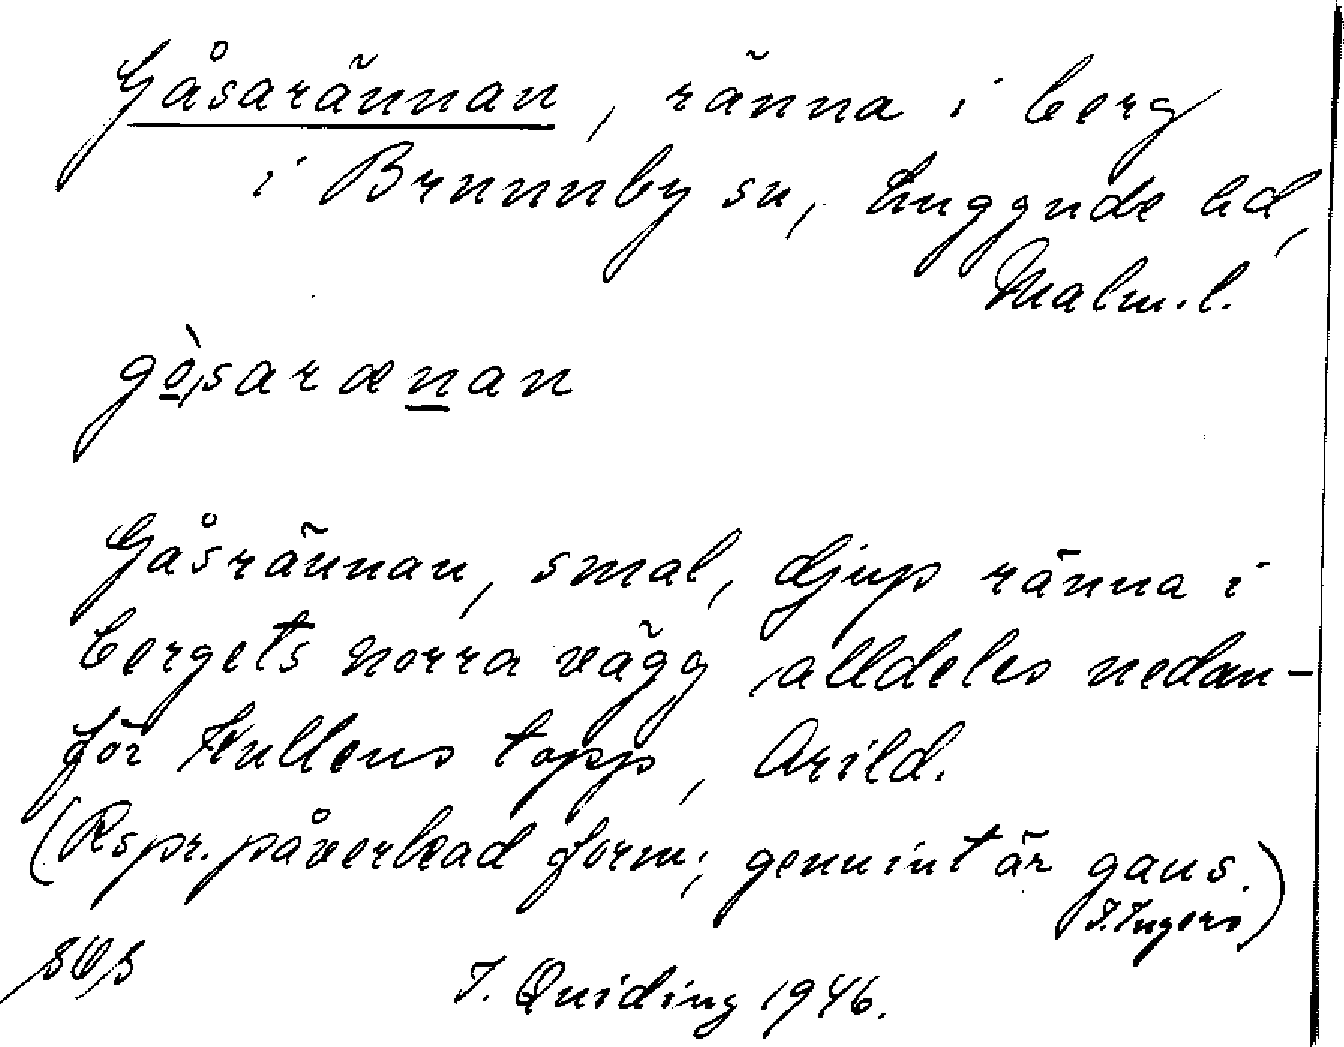 Gåsarännan, ränna i berg
i Brunnby sn, Luggude hd,
Malm.l.
gò̱,saræṉan
Gåsrännan, smal, djup ränna i
bergets norra vägg alldeles nedan-
för Kullens topp, Arild.
(Rspr. påverkad form; genuint är gaus.)
I. Ingers
I. Quiding 1946.